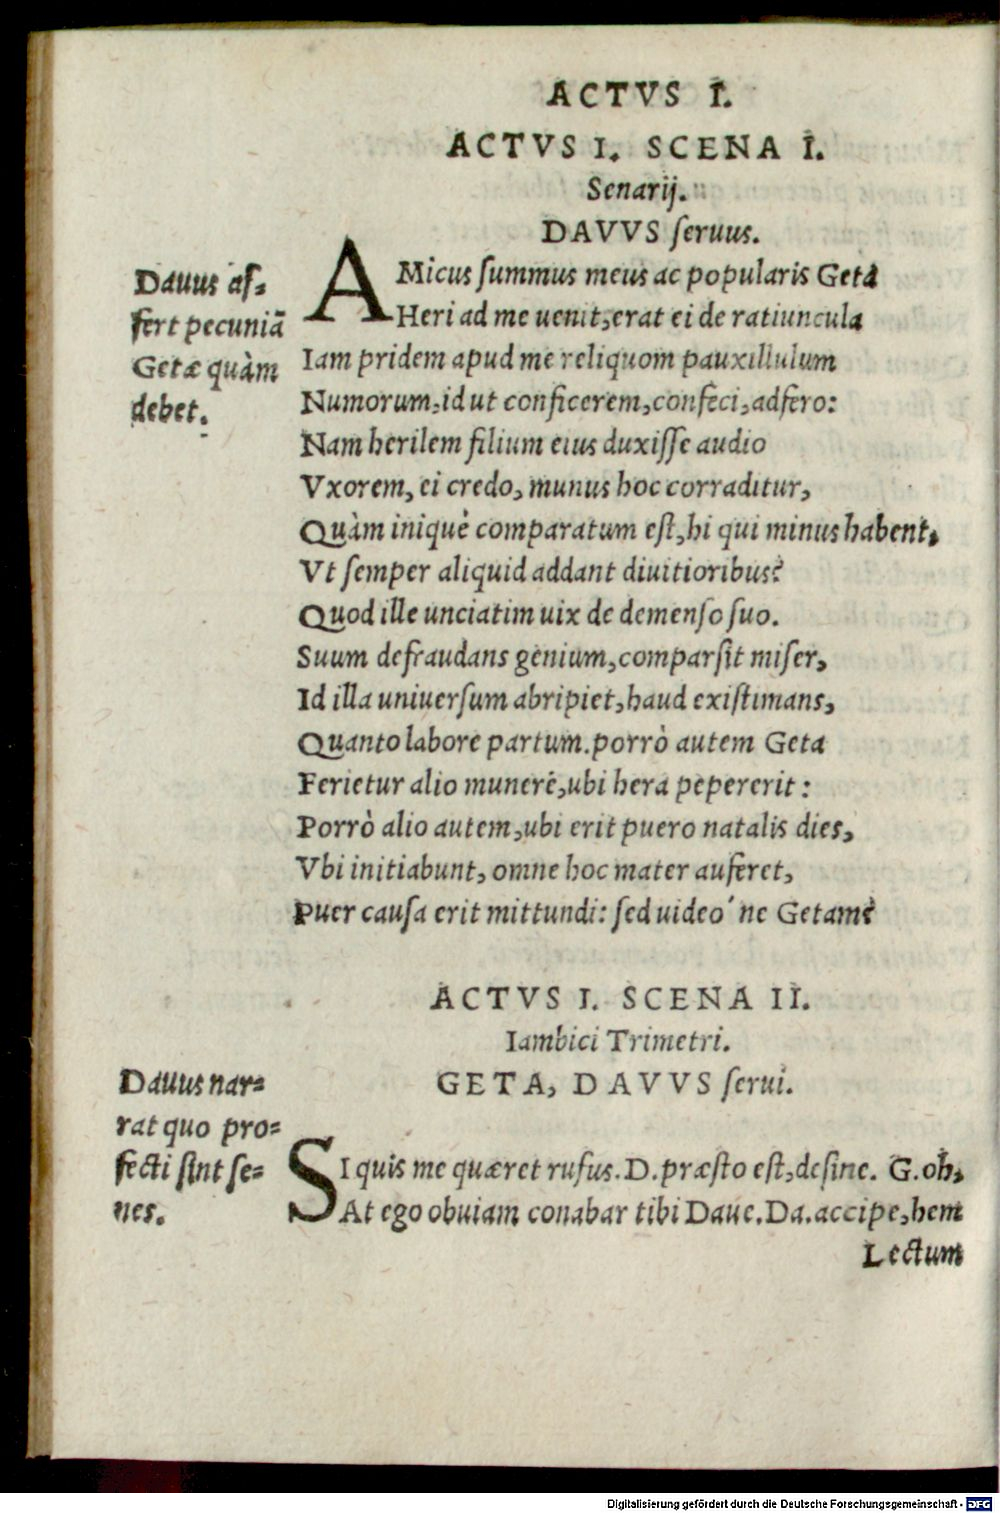 ACTVS I.
ACTVS I. SCENA I.
Senarij.
DAVVS ſeruus.
Dauus af-
fert pecuniā
Getæ quàm
debet.
AMicus ſummus meus ac popularis Geta
Heri ad me uenit, erat ei de ratiuncula
Iam pridem apud me reliquom pauxillulum
Numorum, id ut conficerem, confeci, adfero:
Nam herilem filium eius duxiſſe audio
Vxorem, ei credo, munus hoc corraditur,
Quàm iniquè comparatum eſt, hi qui minus habent,
Vt ſemper aliquid addant diuitioribus?
Quod ille unciatim uix de demenſo ſuo.
Suum defraudans genium, comparſit miſer,
Id illa uniuerſum abripiet, haud exiſtimans,
Quanto labore partum. porrò autem Geta
Ferietur alio munere, ubi hera pepererit:
Porrò alio autem, ubi erit puero natalis dies,
Vbi initiabunt, omne hoc mater auferet,
Puer cauſa erit mittundi: ſed uideo' ne Getam?
ACTVS I. SCENA II.
Iambici Trimetri.
GETA, DAVVS ſerui.
Dauus nar-
rat quo pro-
fecti ſint ſe-
nes.
SI quis me quæret rufus. D. præſto eſt, deſine. G. oh,
At ego obuiam conabar tibi Daue. Da. accipe, hem
Lectum
Digitalisierung gefördert durch die Deutsche Forschungsgemeinschaft - DFG